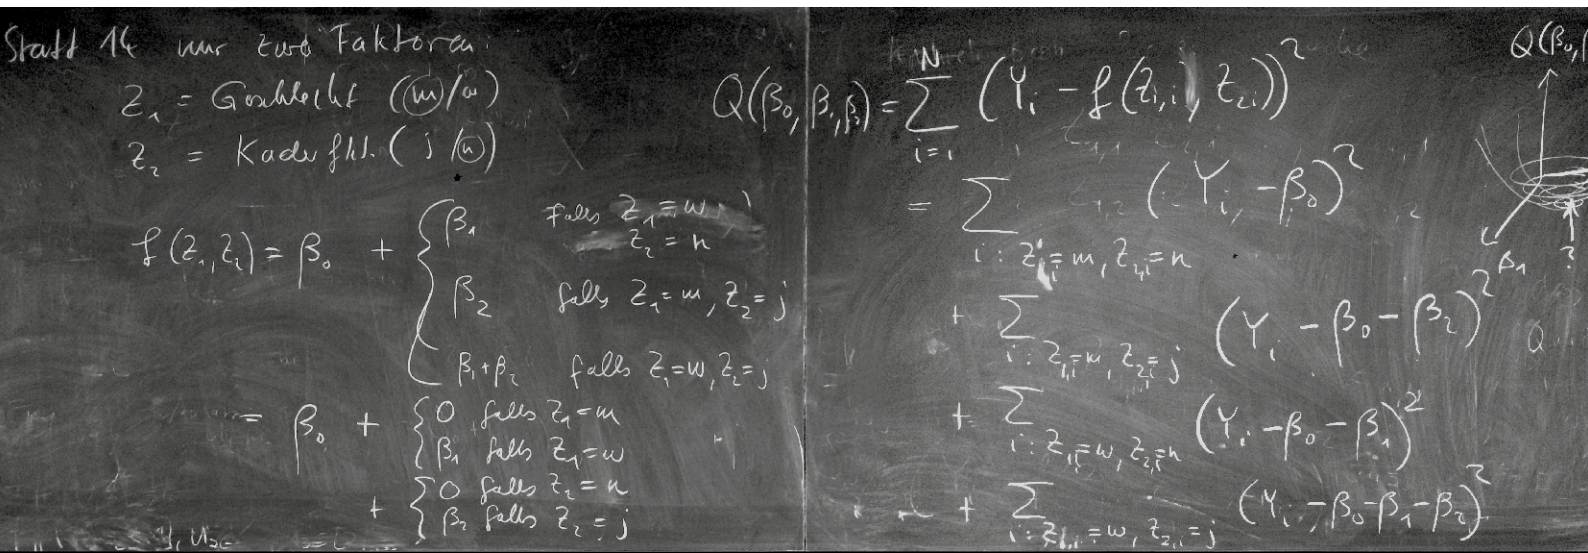 Statt 14 nur zwei Faktoren:
Z₁ = Geschlecht (m/w)
Z₂ = Kaderfkt. (j/n)
f(Z₁, Z₂) = β₀ + { β₁ falls Z₁ = w, Z₂ = n
β₂ falls Z₁ = m, Z₂ = j
β₁+β₂ falls Z₁=w, Z₂=j
= β₀ + { 0 falls Z₁=m
β₁ falls Z₁=w
+ { 0 falls Z₂ = n
β₂ falls Z₂ = j
Q(β₀, β₁, β₂) = ∑_{i=1}^{N} (Y_i - f(Z_{1,i}, Z_{2,i}))²
= ∑_{i: Z_{1,i}=m, Z_{2,i}=n} (Y_i - β₀)²
+ ∑_{i: Z_{1,i}=m, Z_{2,i}=j} (Y_i - β₀ - β₂)²
+ ∑_{i: Z_{1,i}=w, Z_{2,i}=n} (Y_i - β₀ - β₁)²
+ ∑_{i: Z_{1,i}=w, Z_{2,i}=j} (Y_i - β₀ - β₁ - β₂)²
Q(β₀,
β₁ ?